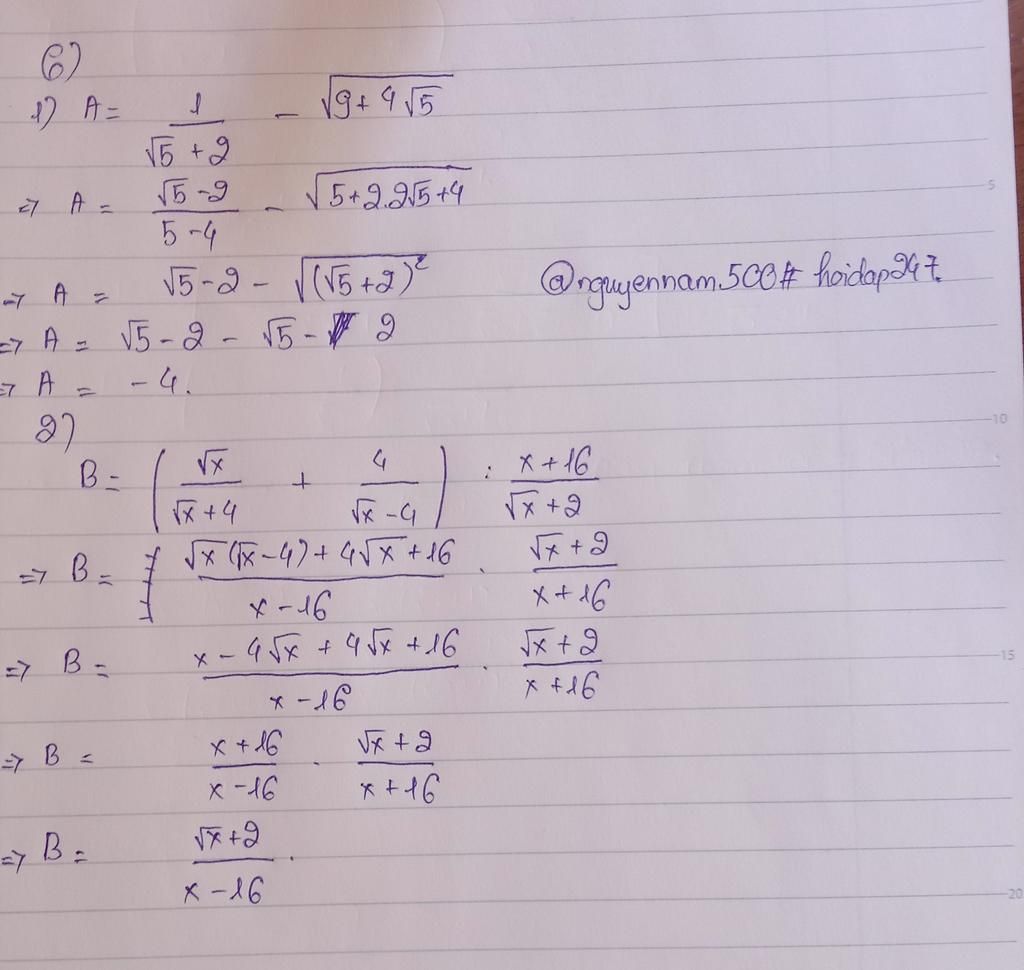 6)
1) A = 1/(√5 + 2) - √(9 + 4√5)
=> A = (√5 - 2)/(5 - 4) - √(5 + 2.2√5 + 4)
=> A = √5 - 2 - √((√5 + 2)²)
@nguyennam500# hoidap247.
=> A = √5 - 2 - √5 - 2
=> A = - 4.
2)
B = (√x/(√x + 4) + 4/(√x - 4)) : (x + 16)/(√x + 2)
=> B = (√x(√x - 4) + 4√x + 16)/(x - 16) . (√x + 2)/(x + 16)
=> B = (x - 4√x + 4√x + 16)/(x - 16) . (√x + 2)/(x + 16)
=> B = (x + 16)/(x - 16) . (√x + 2)/(x + 16)
=> B = (√x + 2)/(x - 16) .
5
10
15
20